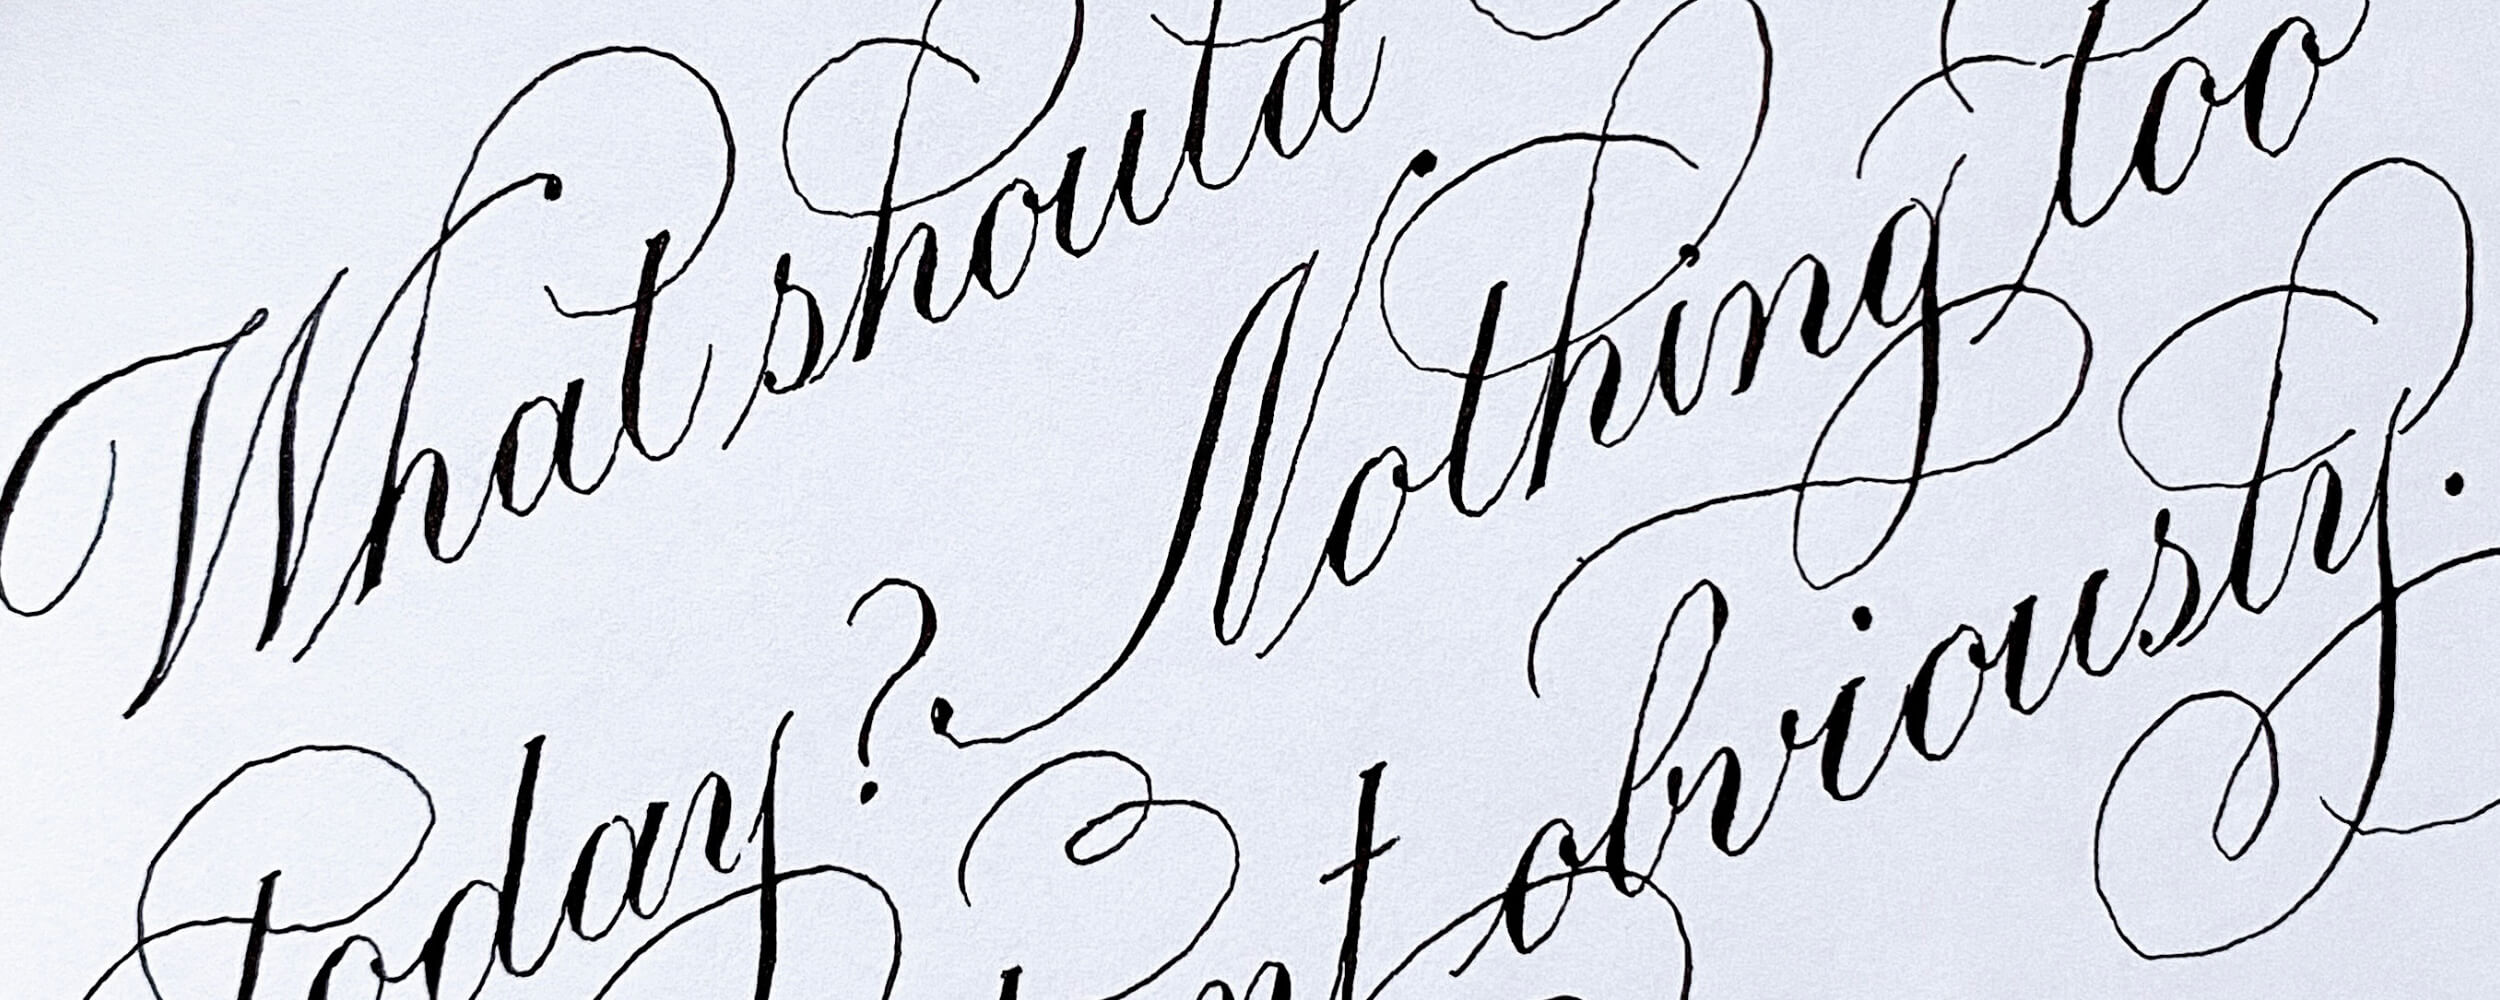 What should
today? Nothing too
obviously.